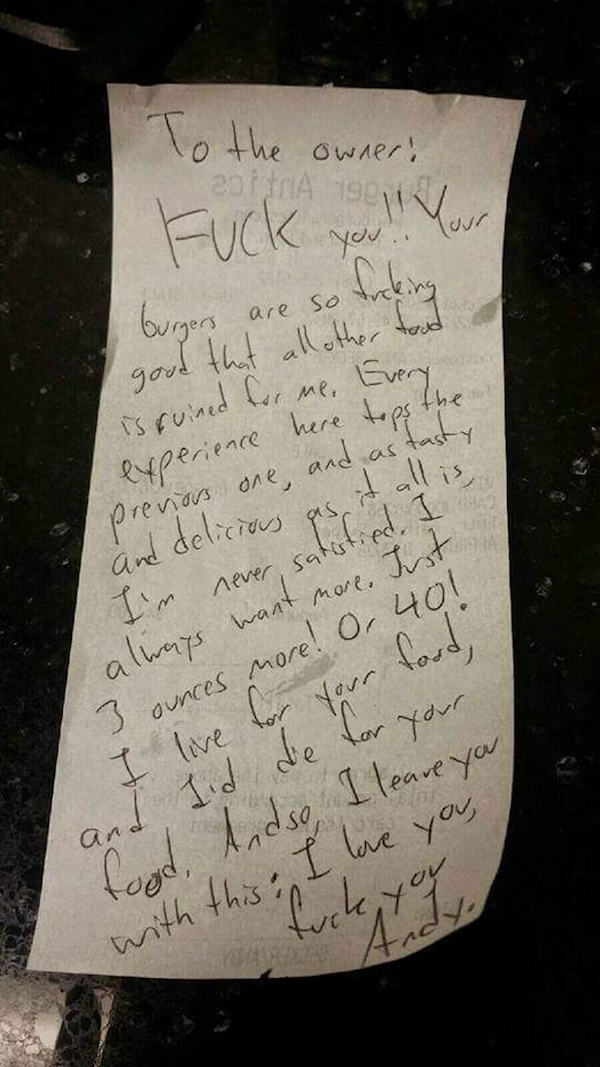 To the owner!
FUCK you!! Your
burgers are so fucking
good that all other food
is ruined for me. Every
experience here tops the
previous one, and as tasty
and delicious as it all is,
I'm never satisfied. I
always want more. Just
3 ounces more! Or 40!
I live for your food,
and I'd die for your
food. And so, I leave you
with this: I love you,
fuck you
Andy.
Burger Antics